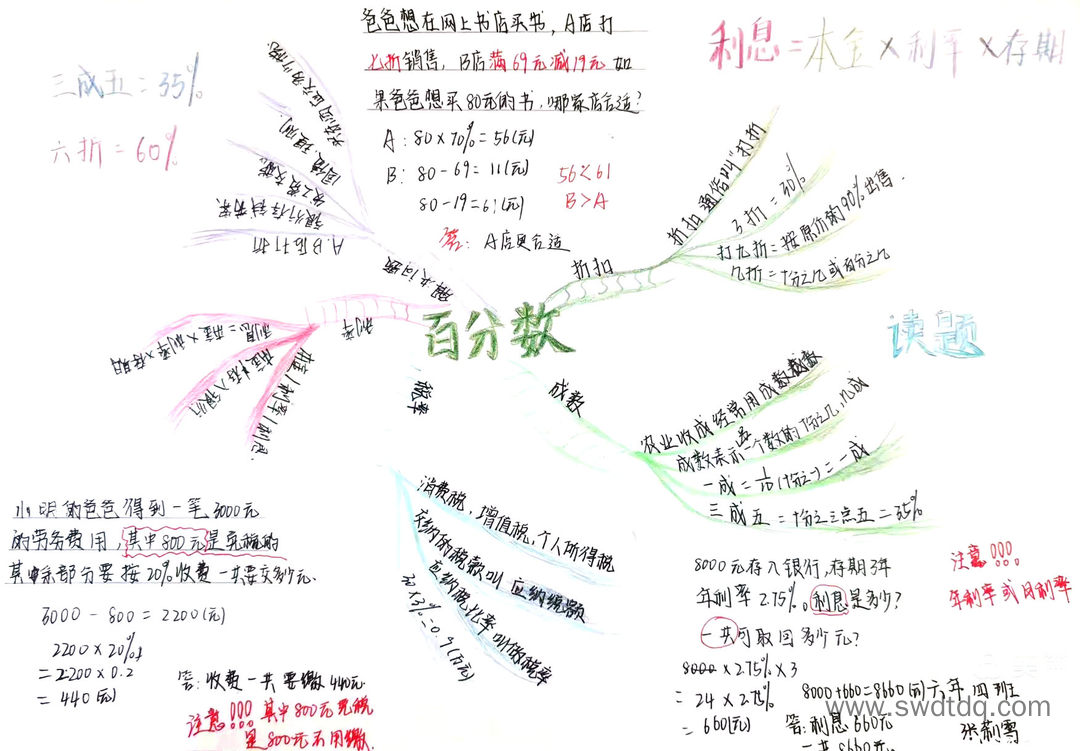 爸爸想在网上书店买书,A店打
七折销售,B店满69元减19元 如
果爸爸想买80元的书,哪家店合适?
A:80×70%=56(元)
B:80-69=11(元)
80-19=61(元)
56<61
B>A
答:A店更合适
利息=本金×利率×存期
三成五=35%
六折=60%
百分数
读题
折扣
折扣 通俗叫"打折
3折=30%
打九折=按原价的90%出售.
几折=十分之几或百分之几
成数
农业收成经常用成数
成数表示一个数的十分之几,几成
一成=1/10(十分之一)=一成
三成五=十分之三点五=35%
税率
消费税,增值税,个人所得税
交纳的税款叫 应纳税额
应纳税比率叫做税率
30×3%=0.9(万元)
利率
本金/利率/利息
本金本存入银行
利息=本金×利率×存期
解决问题
A.B店打折
银行存钱
小明的爸爸得到一笔3000元
的劳务费用,其中800元是免税的
其中余部分要按20%收费一共要交多少元.
3000-800=2200(元)
2200×20%
=2200×0.2
=440(元)
答:收费一共要缴440元.
注意!!!其中800元免税
是800元不用缴.
8000元存入银行,存期3年
年利率2.75%。利息是多少?
一共可取回多少元?
8000×2.75%×3
=24×2.75%
=660(元)
8000+660=8660(元)
答:利息660元
一共8660元
注意!!!
年利率或月利率
六年四班
www.swdtdq.com